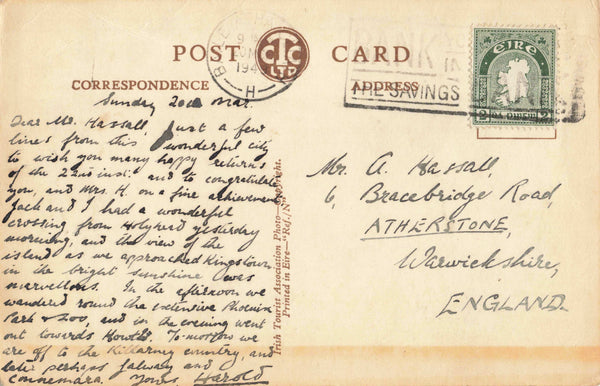 POST CARD
CTC
LTD
CORRESPONDENCE
ADDRESS
BANK
THE SAVINGS
194
H
EIRE
2
Sunday 20th Mar.
Dear Mr. Hassall, Just a few
lines from this wonderful city
to wish you many happy returns
of the 22nd inst: and to congratulate
you, and Mrs. H. on a fine achievement.
Jack and I had a wonderful
crossing from Holyhead yesterday
morning, and the view of the
island as we approached Kingstown
in the bright sunshine was
marvellous. In the afternoon we
wandered round the extensive Phoenix
Park & Zoo, and in the evening went
out towards Howth. To-morrow we
are off to the Killarney country, and
later perhaps Galway and
Connemara. Yours, Harold
Irish Tourist Association Photo—Copyright.
Printed in Eire—"Ref./N"
Mr. A. Hassall,
6, Bracebridge Road,
ATHERSTONE,
Warwickshire,
ENGLAND.